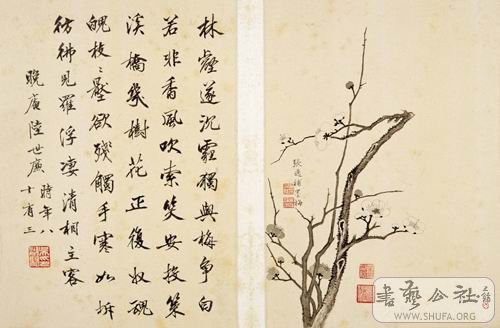 林壑遂沉霾獨與梅爭白
若非香風吹索笑安投策
溪橋幾樹花正復奴魂
魄枝〻壓欲殘觸手寒如拆
彷彿見羅浮凄清相主客
晚庵陸世廉時年八
十有三
墨梅
書藝公社
WWW.SHUFA.ORG